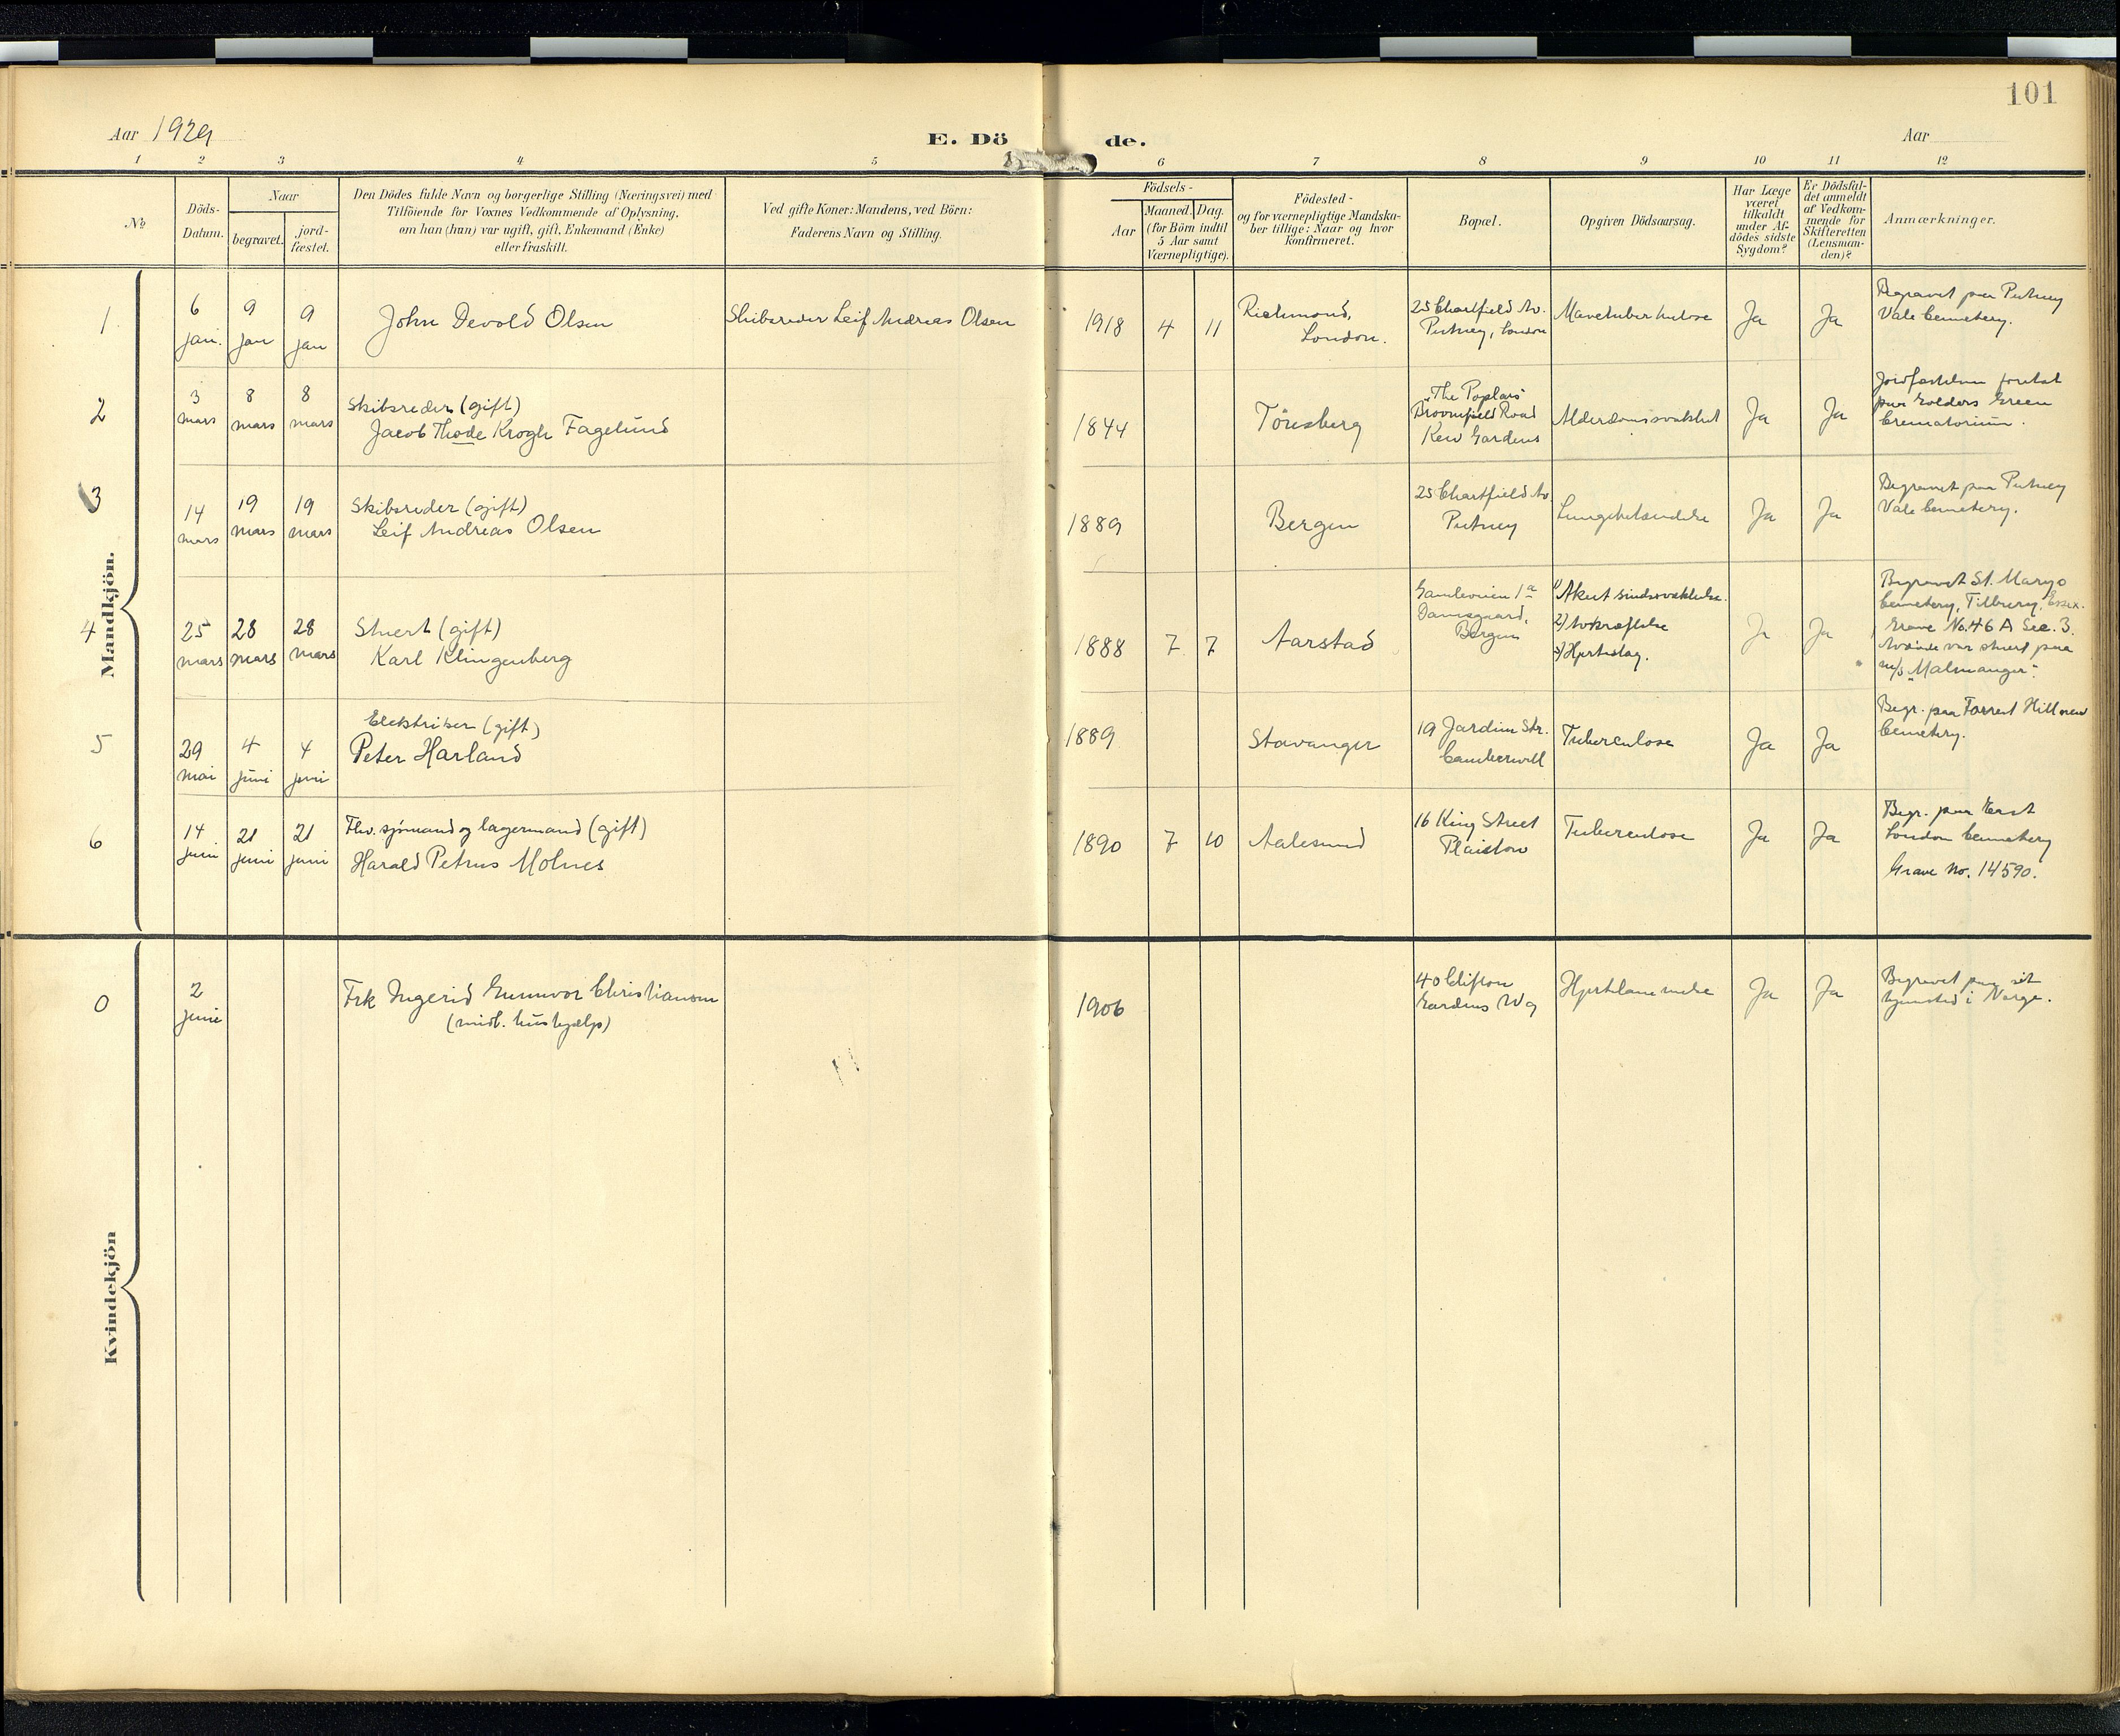 101
Aar 1929
E. Dö de.
Aar
1 2 3 4 5 6 7 8 9 10 11 12
No
Döds-
Datum.
Naar
begravet.
jord-
fæstet.
Den Dödes fulde Navn og borgerlige Stilling (Næringsvei) med
Tilföiende for Voxnes Vedkommende af Oplysning.
om han (hun) var ugift, gift, Enkemand (Enke)
eller fraskilt.
Ved gifte Koner: Mandens, ved Börn:
Faderens Navn og Stilling.
Födsels-
Aar
Maaned. Dag.
(for Börn indtil
5 Aar samt
Værnepligtige).
Födested-
og for værnepligtige Mandska-
ber tillige: Naar og hvor
konfirmeret.
Bopæl.
Opgiven Dödsaarsag.
Har Læge
været
tilkaldt
under Af-
dödes sidste
Sygdom?
Er Dödsfal-
det anmeldt
af Vedkom-
mende for
Skifteretten
(Lensman-
den)?
Anmærkninger.
Mandkjön.
1
6
jan.
9
jan
9
jan
John Devold Olsen
Skibsreder Leif Andreas Olsen
1918 4 11
Richmond,
London.
25 Chartfield Av.
Putney, London
Mavetuberkulose
Ja
Ja
Begravet paa Putney
Vale Cemetery.
2
3
mars
8
mars
8
mars
Skibsreder (gift)
Jacob Thode Krogh Fagelund
1844
Tönsberg
"The Poplars"
Broomfield Road
Kew Gardens
Alderdomssvakhet
Ja
Ja
Jordfæstelsen foretat
paa Golders Green
Crematorium.
3
14
mars
19
mars
19
mars
Skibsreder (gift)
Leif Andreas Olsen
1889
Bergen
25 Chartfield Av.
Putney
Lungebetændelse
Ja
Ja
Begravet paa Putney
Vale Cemetery.
4
25
mars
28
mars
28
mars
Stuert (gift)
Karl Klingenberg
1888 7 7
Aarstad
Gamleveien 1a
Damsgaard,
Bergen
1) Akut sindssvækkelse.
2) Avkræftelse
3) Hjerteslag.
Ja
Ja
Begravet St. Marys
Cemetery, Tilbury, Essex.
Grave No. 46 A Sec. 3.
Avdøde var stuert paa
m/s "Malmanger".
5
29
mai
4
juni
4
juni
Elektriker (gift)
Peter Harland
1889
Stavanger
19 Jardin Str.
Camberwell
Tuberculose
Ja
Ja
Begr. paa Forrest Hill new
Cemetery.
6
14
juni
21
juni
21
juni
Fhv. sjømand og lagermand (gift)
Harald Petrus Molnes
1890 7 10
Aalesund
16 King Street
Plaistow
Tuberculose
Ja
Ja
Begr. paa East
London Cemetery
Grave No. 14590.
Kvindekjön
0
2
juni
Frk Ingerid Gunnvor Christiansen
(midl. hushjælp)
1906
40 Clifton
Gardens W9
Hjertelammelse
Ja
Ja
Begravet paa sit
hjemsted i Norge.